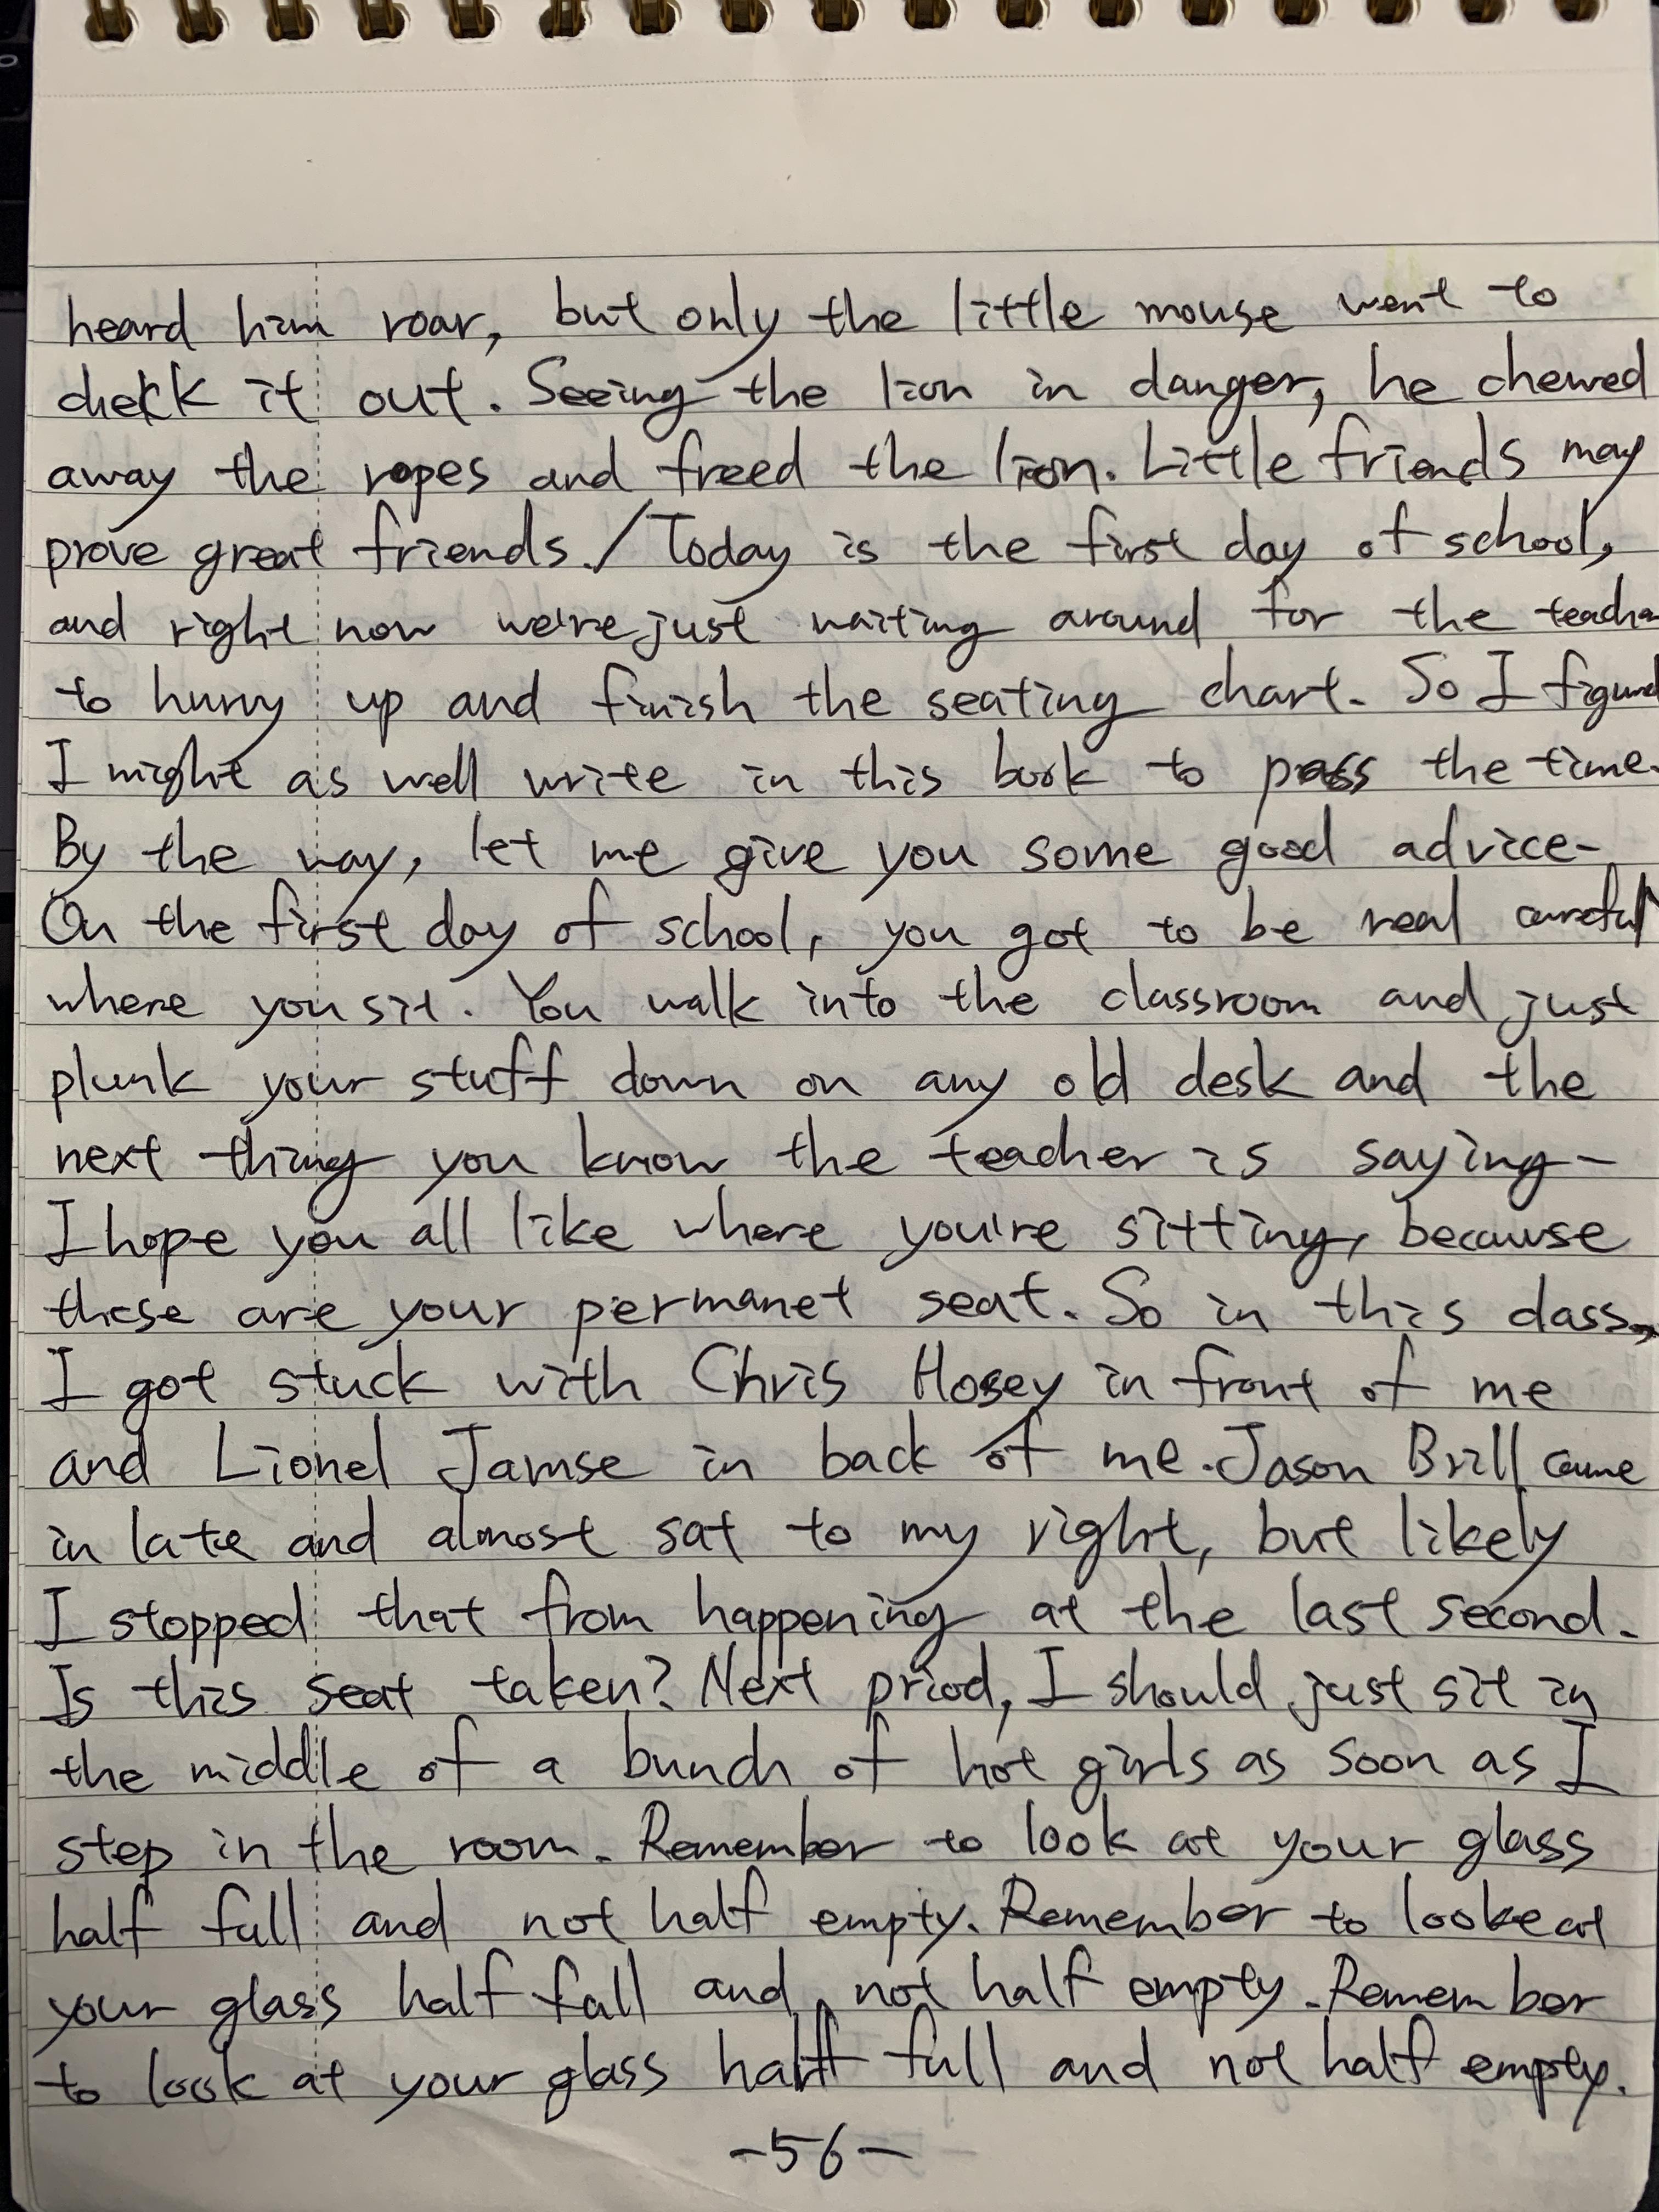 heard him roar, but only the little mouse went to
check it out. Seeing the lion in danger, he chewed
away the ropes and freed the lion. Little friends may
prove great friends. / Today is the first day of school,
and right now we're just waiting around for the teacher
to hurry up and finish the seating chart. So I figured
I might as well write in this book to pass the time.
By the way, let me give you some good advice-
On the first day of school, you got to be real careful
where you sit. You walk into the classroom and just
plunk your stuff down on any old desk and the
next thing you know the teacher is saying-
I hope you all like where you're sitting, because
these are your permanet seat. So in this class,
I got stuck with Chris Hosey in front of me
and Lionel Jamse in back of me. Jason Brill came
in late and almost sat to my right, but likely
I stopped that from happening at the last second.
Is this seat taken? Next priod, I should just sit in
the middle of a bunch of hot girls as soon as I
step in the room. Remember to look at your glass
half full and not half empty. Remember to looke at
your glass half fall and not half empty. Remember
to look at your glass half full and not half empty.
-56-